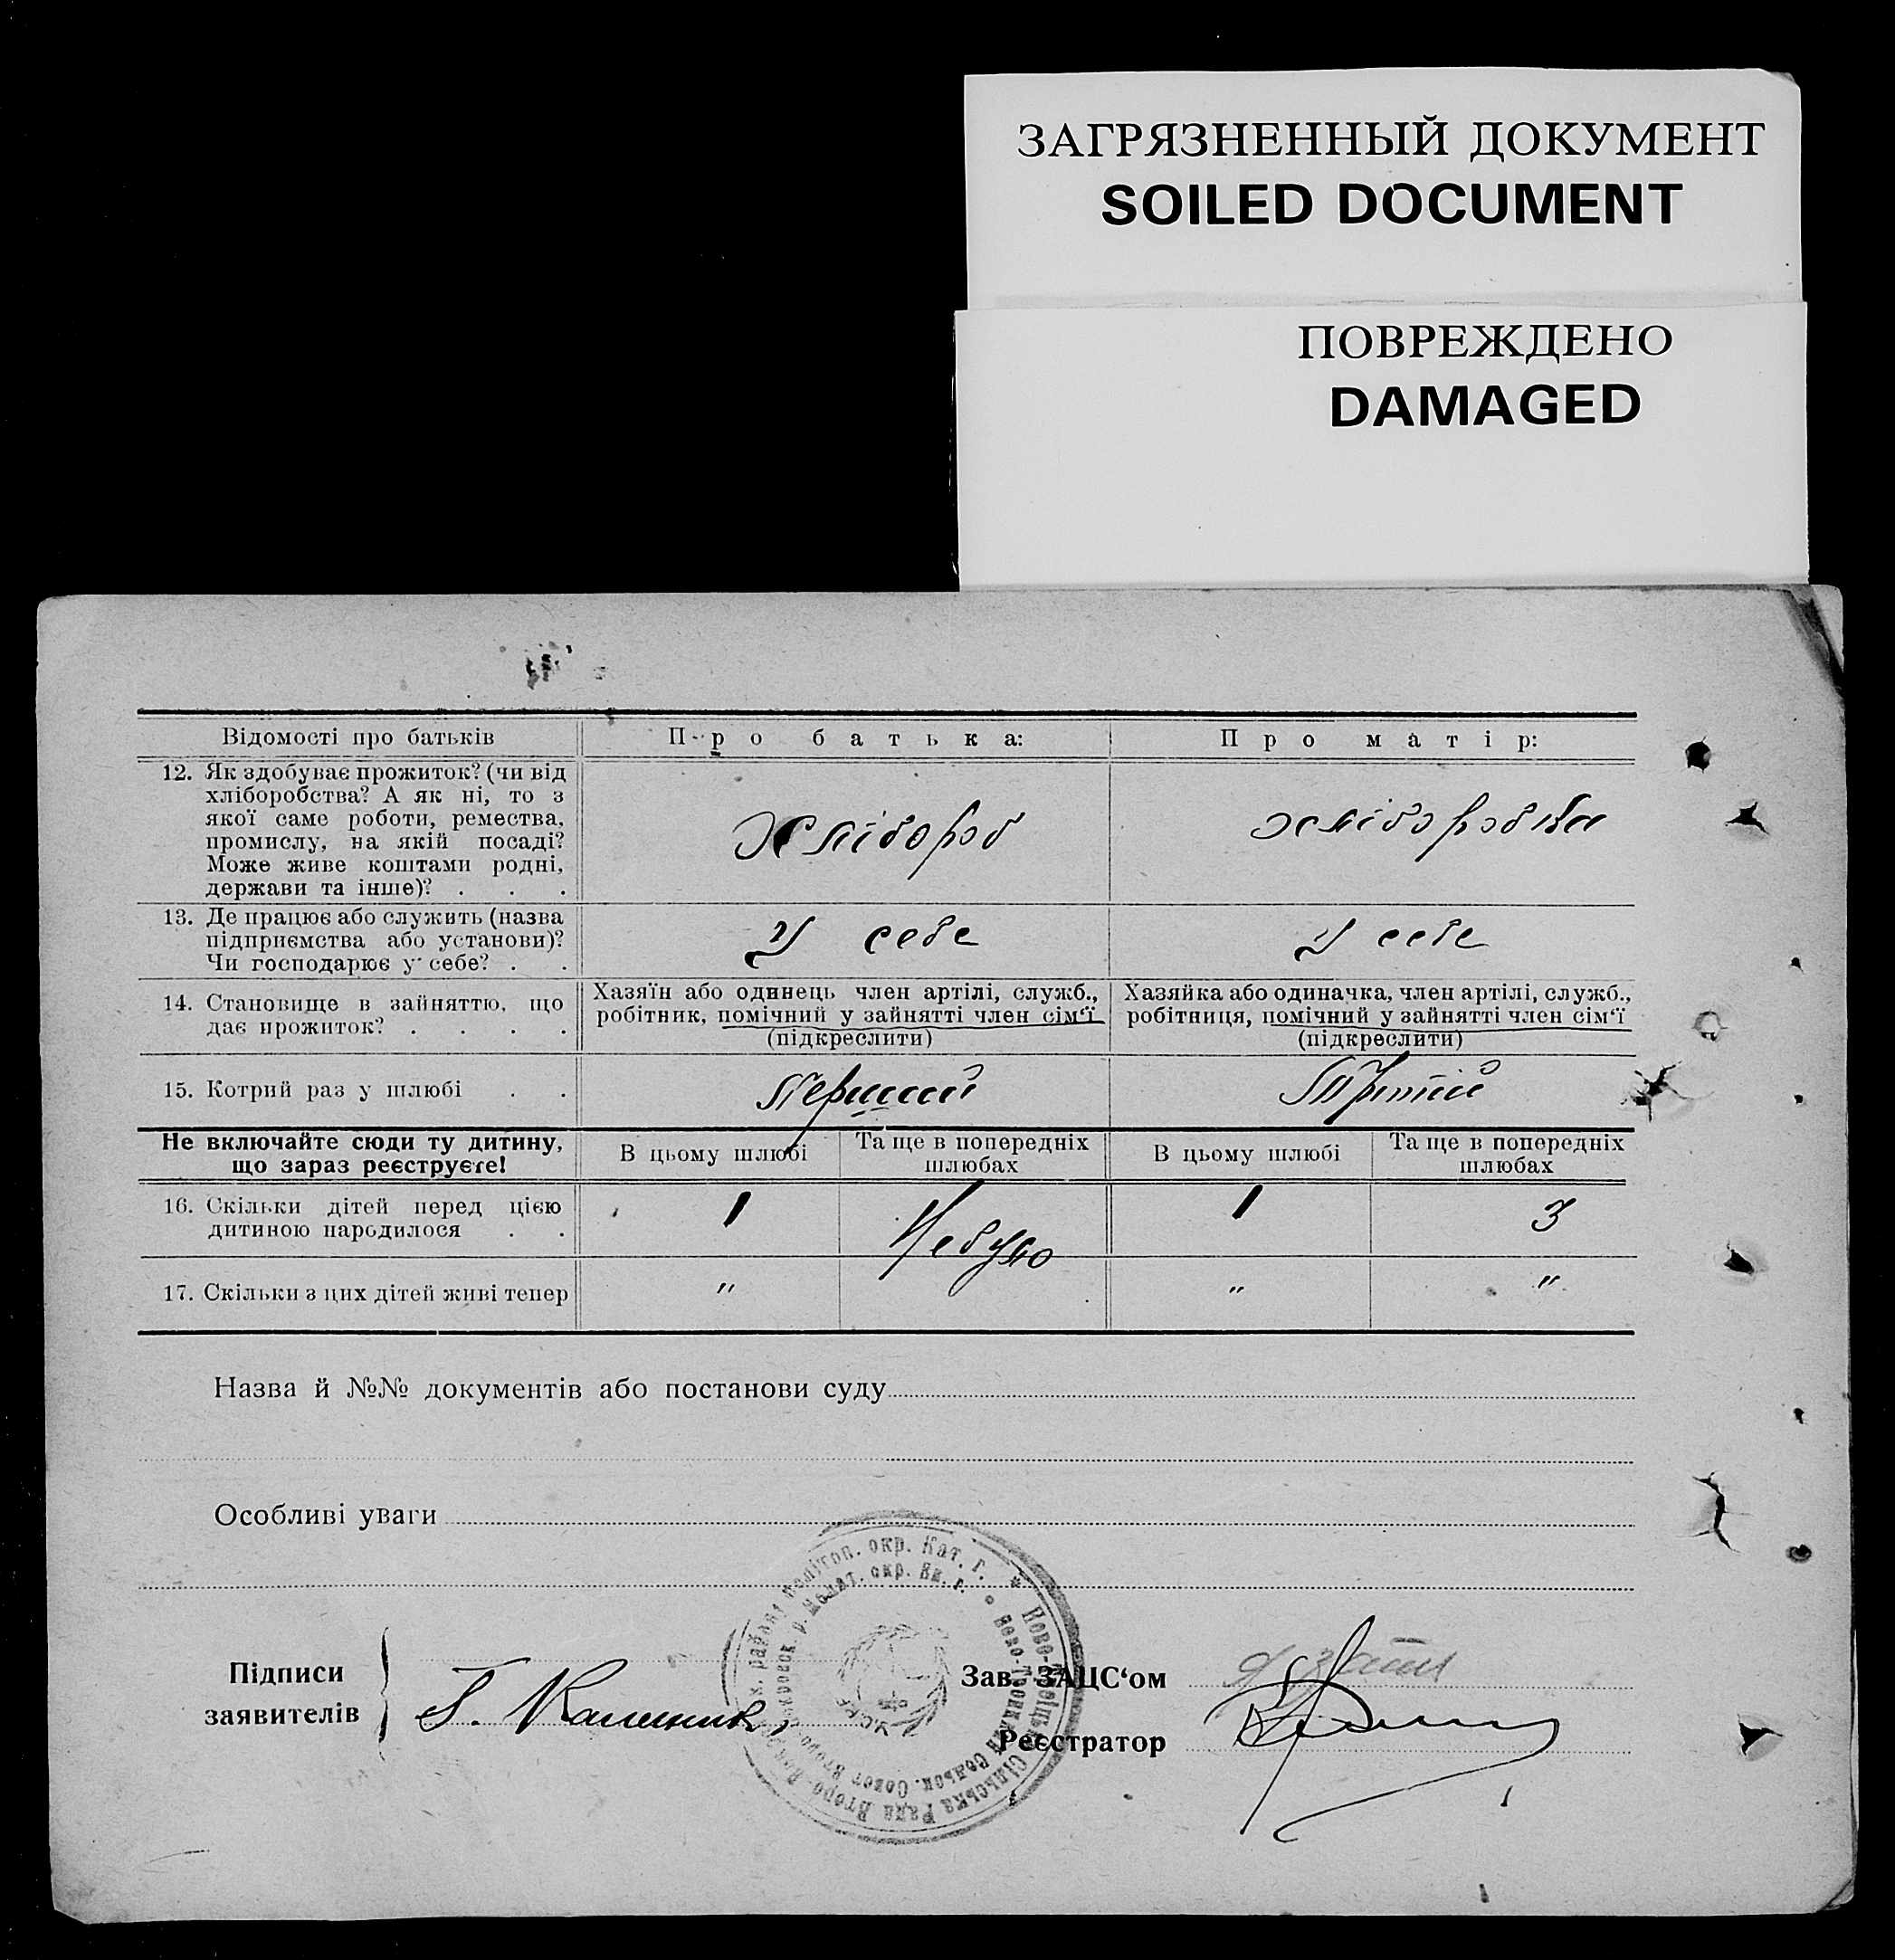 ЗАГРЯЗНЕННЫЙ ДОКУМЕНТ
SOILED DOCUMENT
ПОВРЕЖДЕНО
DAMAGED
Відомості про батьків
Про батька:
Про матір:
12. Як здобуває прожиток? (чи від
хліборобства? А як ні, то з
якої саме роботи, ремества,
промислу, на якій посаді?
Може живе коштами родні,
держави та інше)? . . .
Хлібороб
хліборобка
13. Де працює або служить (назва
підприємства або установи)?
Чи господарює у себе? . .
У себе
У себе
14. Становище в зайняттю, що
дає прожиток? . . . .
Хазяїн або одинець член артілі, служб.,
робітник, помічний у зайнятті член сім‘ї
(підкреслити)
Хазяйка або одиначка, член артілі, служб.,
робітниця, помічний у зайнятті член сім‘ї
(підкреслити)
15. Котрий раз у шлюбі . .
Перший
Третій
Не включайте сюди ту дитину,
що зараз реєструєте!
В цьому шлюбі
Та ще в попередніх
шлюбах
В цьому шлюбі
Та ще в попередніх
шлюбах
16. Скільки дітей перед цією
дитиною народилося . .
1
Небуло
1
3
17. Скільки з цих дітей живі тепер
"
"
"
Назва й №№ документів або постанови суду
Особливі уваги
Підписи
заявителів
Зав. ЗАЦС‘ом
Реєстратор
Ново-Троїцька Сільська Рада Второ-Покровськ. району Мелітоп. окр. Кат. г.
Ново-Троицкий Сельск. Совет Второ-Покровск. р. Мелит. окр. Ек. г.
УСРР